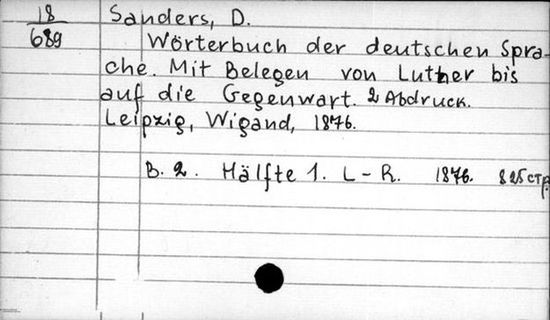 18
689
Sanders, D.
Wörterbuch der deutschen Spra-
che. Mit Belegen von Luther bis
auf die Gegenwart. 2 Abdruck.
Leipzig, Wigand, 1876.
B. 2. Hälfte 1. L-R. 1876. 825 стр.